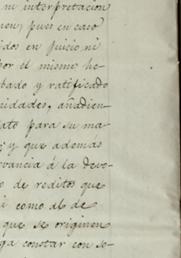 ni interpretacion
nen, pues en caso
idos en juicio ni
por el mismo he-
bado y ratificado
nidades, añadien-
ato para su ma-
; y que ademas
rvancia á la devo-
o de reditos que
i como al de
que se originen
ga constar con so-